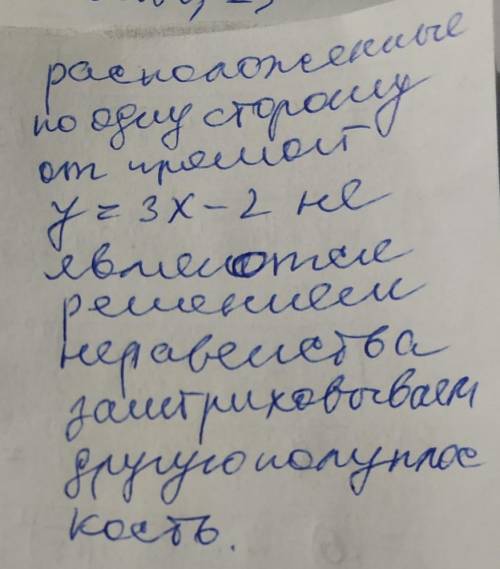 расположенные
по одну сторону
от прямой
y = 3x - 2 не
являются
решением
неравенства
заштриховываем
другую полуплос
кость.